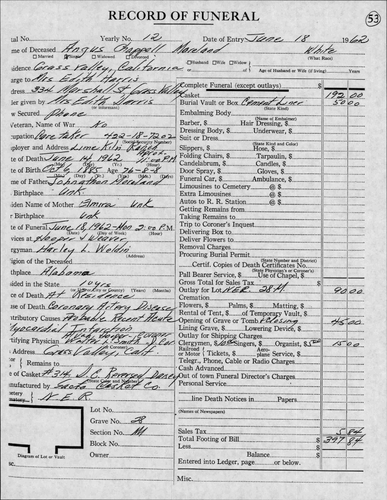 RECORD OF FUNERAL
53
Yearly No. 12
Date of Entry June 18 1962
me of Deceased Angus Chappell Moreland White
(What Race)
Married Widowed Divorced
Husband Wife Widow
idence Grass Valley, California
Age of Husband or Wife (if living) Yrs.
arge to Mrs Edith Harris
dress 334 Marshall St Grass Valley
der given by Mrs Edith Harris
w Secured Phone
Veteran, Name of War No
cupation Care Taker 422-18-7202
ployer and Address Lime Kiln Ranch
te of Death June 14, 1962
te of Birth Oct 6 1885 76-8-8
me of Father Johnathan Moreland
Birthplace Unk
iden Name of Mother Emma Unk
Birthplace Unk
te of Funeral June 18, 1962-Mon 2:00 P.M.
vices at Hooper & Weaver
rgyman Harley L. Weldin
ligion of the Deceased
thplace Alabama
sided in the State
ce of Death At Residence
use of Death Coronary Artery Disease
ntributory Causes
Myocardial Infarction
tifying Physician
Address Grass Valley, Calif
Remains to
e of Casket #314
nufactured by Casket Co.
N.E.R.
Lot No.
Grave No. 28
Section No. M
Block No.
Owner
Diagram of Lot or Vault
Complete Funeral (except outlays) $
Casket 192 00
Burial Vault or Box Cement Liner 50 00
(State Kind)
Embalming Body
(Name of Embalmer)
Barber, $ Hair Dressing, $
Dressing Body, $ Underwear, $
Suit or Dress
(State Kind and Color)
Slippers, $ Hose, $
Folding Chairs, $ Tarpaulin, $
Candelabrum, $ Candles, $
Door Spray, $ Gloves, $
Funeral Car, $ Ambulance, $
Limousines to Cemetery @ $
Extra Limousines @ $
Autos to R. R. Station @ $
Getting Remains
Taking Remains to
Trip to Coroner's Inquest
Delivering Box to
Deliver Flowers to
Removal Charges
Procuring Burial Permit
(State Number and District)
Certif. Copies of Death Certificates No.
(State Physician's or Coroner's)
Pall Bearer Service, $ Use of Chapel, $
Gross Total for Sales Tax $
Outlay for Lot NER 28M 90 00
Cremation
Flowers, $ Palms, $ Matting, $
Rental of Tent, $ of Temporary Vault, $
Opening of Grave or Tomb & Closing 45 00
Lining Grave, $ Lowering Device, $
Outlay for Shipping Charges
Clergymen, $ Singers, $ Organist, $ 15 00
Railroad or Motor Tickets, $ Aeroplane Service, $
Telegr., Phone, Cable or Radio Charges
Cash Advanced
Out of town Funeral Director's Charges
Personal Service
line Death Notices in Papers
(Names of Newspapers)
Sales Tax $ 5 84
Total Footing of Bill $ 397 84
Less $
Balance $
Entered into Ledger, page or below.
Misc.